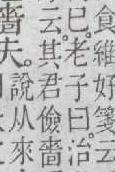 食維好箋云
巳老子曰治
云其君儉嗇
嗇夫
說从來